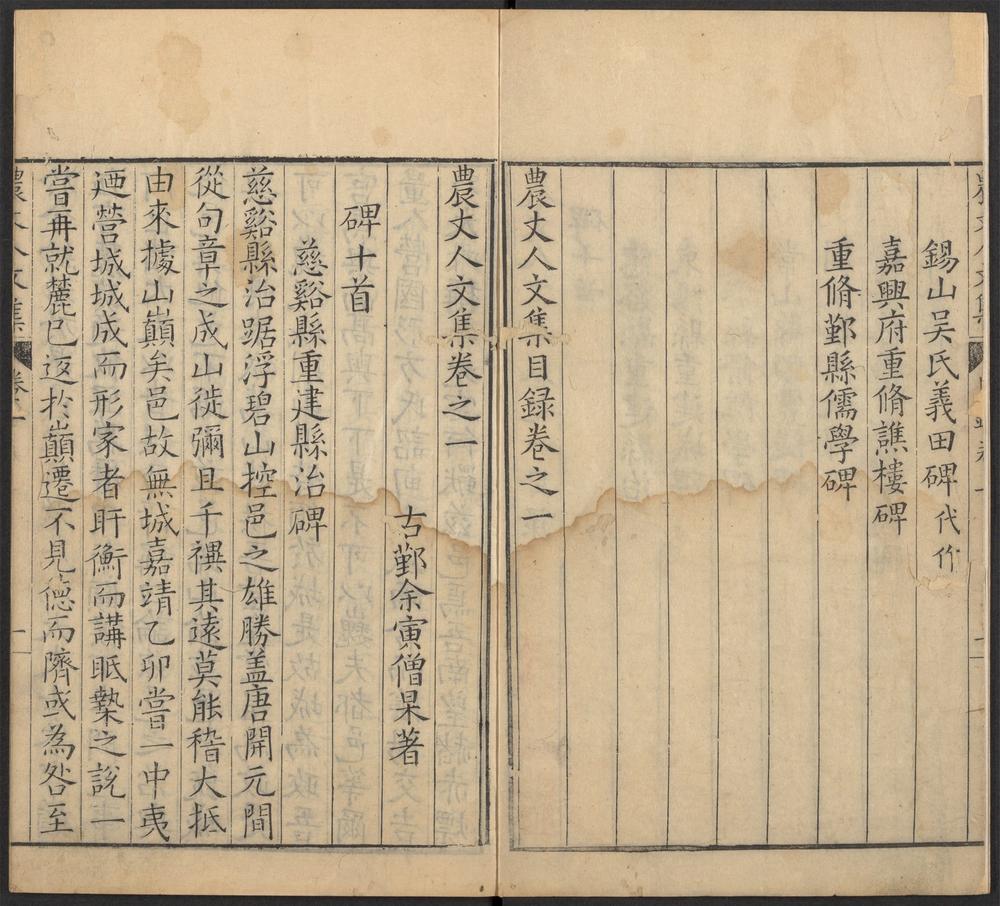 錫山吳氏義田碑代作
嘉興府重脩譙樓碑
重脩鄞縣儒學碑
農丈人文集目録卷之一
農丈人文集卷之一
古鄞余寅僧杲著
碑十首
慈谿縣重建縣治碑
慈谿縣治踞浮碧山控邑之雄勝盖唐開元間
從句章之成山徙彌且千禩其遠莫能稽大抵
由來據山巔矣邑故無城嘉靖乙卯嘗一中夷
迺營城城成而形家者盱衡而講眂埶之說一
嘗再就麓已返扵巔遷不見德而隮或為咎至
農丈人文集
卷之一
一